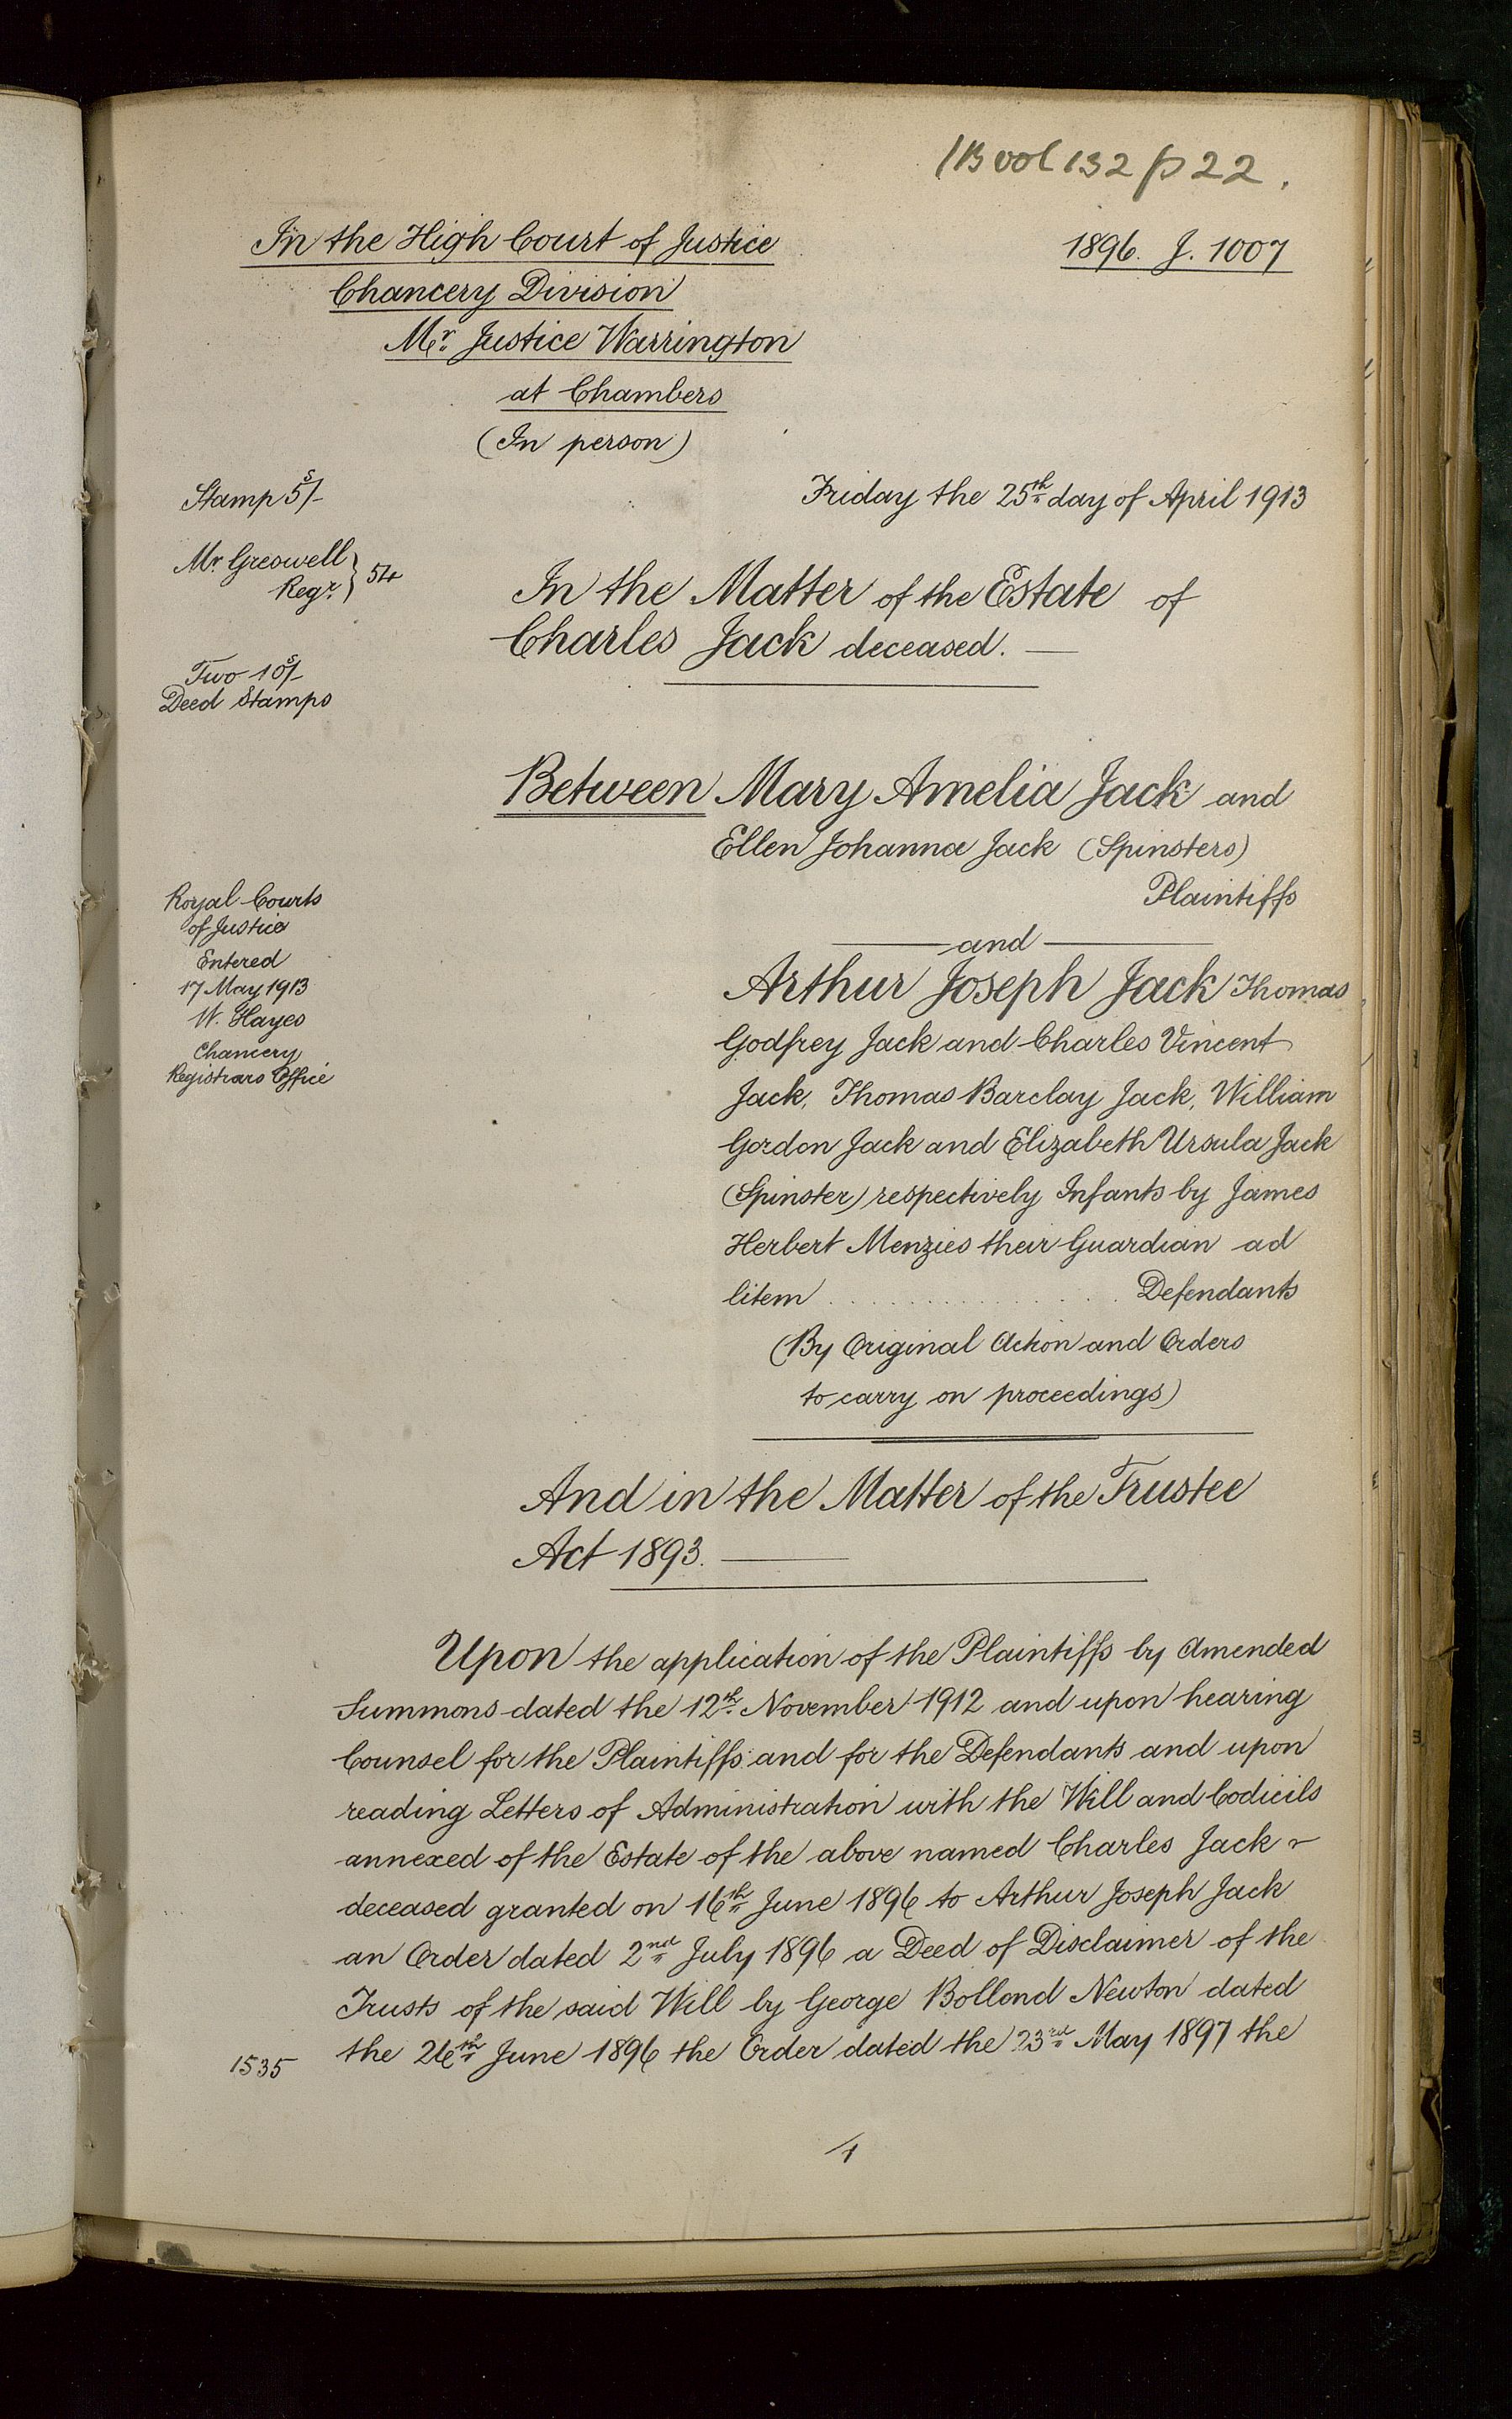 1B vol 132 p 22.
In the High Court of Justice
1896. J. 1007
Chancery Division
Mr. Justice Warrington
at Chambers
(In person)
Stamp 5s/-
Friday the 25th day of April 1913
Mr. Greswell
Regr. } 54
In the Matter of the Estate of
Charles Jack deceased. —
Two 10s/-
Deed Stamps
Between Mary Amelia Jack and
Ellen Johanna Jack (Spinsters)
Plaintiffs
Royal Courts
of Justice
Entered
17 May 1913
W. Hayes
Chancery
Registrars Office
— and —
Arthur Joseph Jack Thomas
Godfrey Jack and Charles Vincent
Jack, Thomas Barclay Jack, William
Gordon Jack and Elizabeth Ursula Jack
(Spinster) respectively Infants by James
Herbert Menzies their Guardian ad
litem . . . . . . . . . . . . . . . Defendants
(By Original Action and Orders
to carry on proceedings)
And in the Matter of the Trustee
Act 1893. —
Upon the application of the Plaintiffs by Amended
Summons dated the 12th November 1912 and upon hearing
Counsel for the Plaintiffs and for the Defendants and upon
reading Letters of Administration with the Will and Codicils
annexed of the Estate of the above named Charles Jack
deceased granted on 16th June 1896 to Arthur Joseph Jack
an Order dated 2nd July 1896 a Deed of Disclaimer of the
Trusts of the said Will by George Bollond Newton dated
the 26th June 1896 the Order dated the 23rd May 1897 the
1535
1